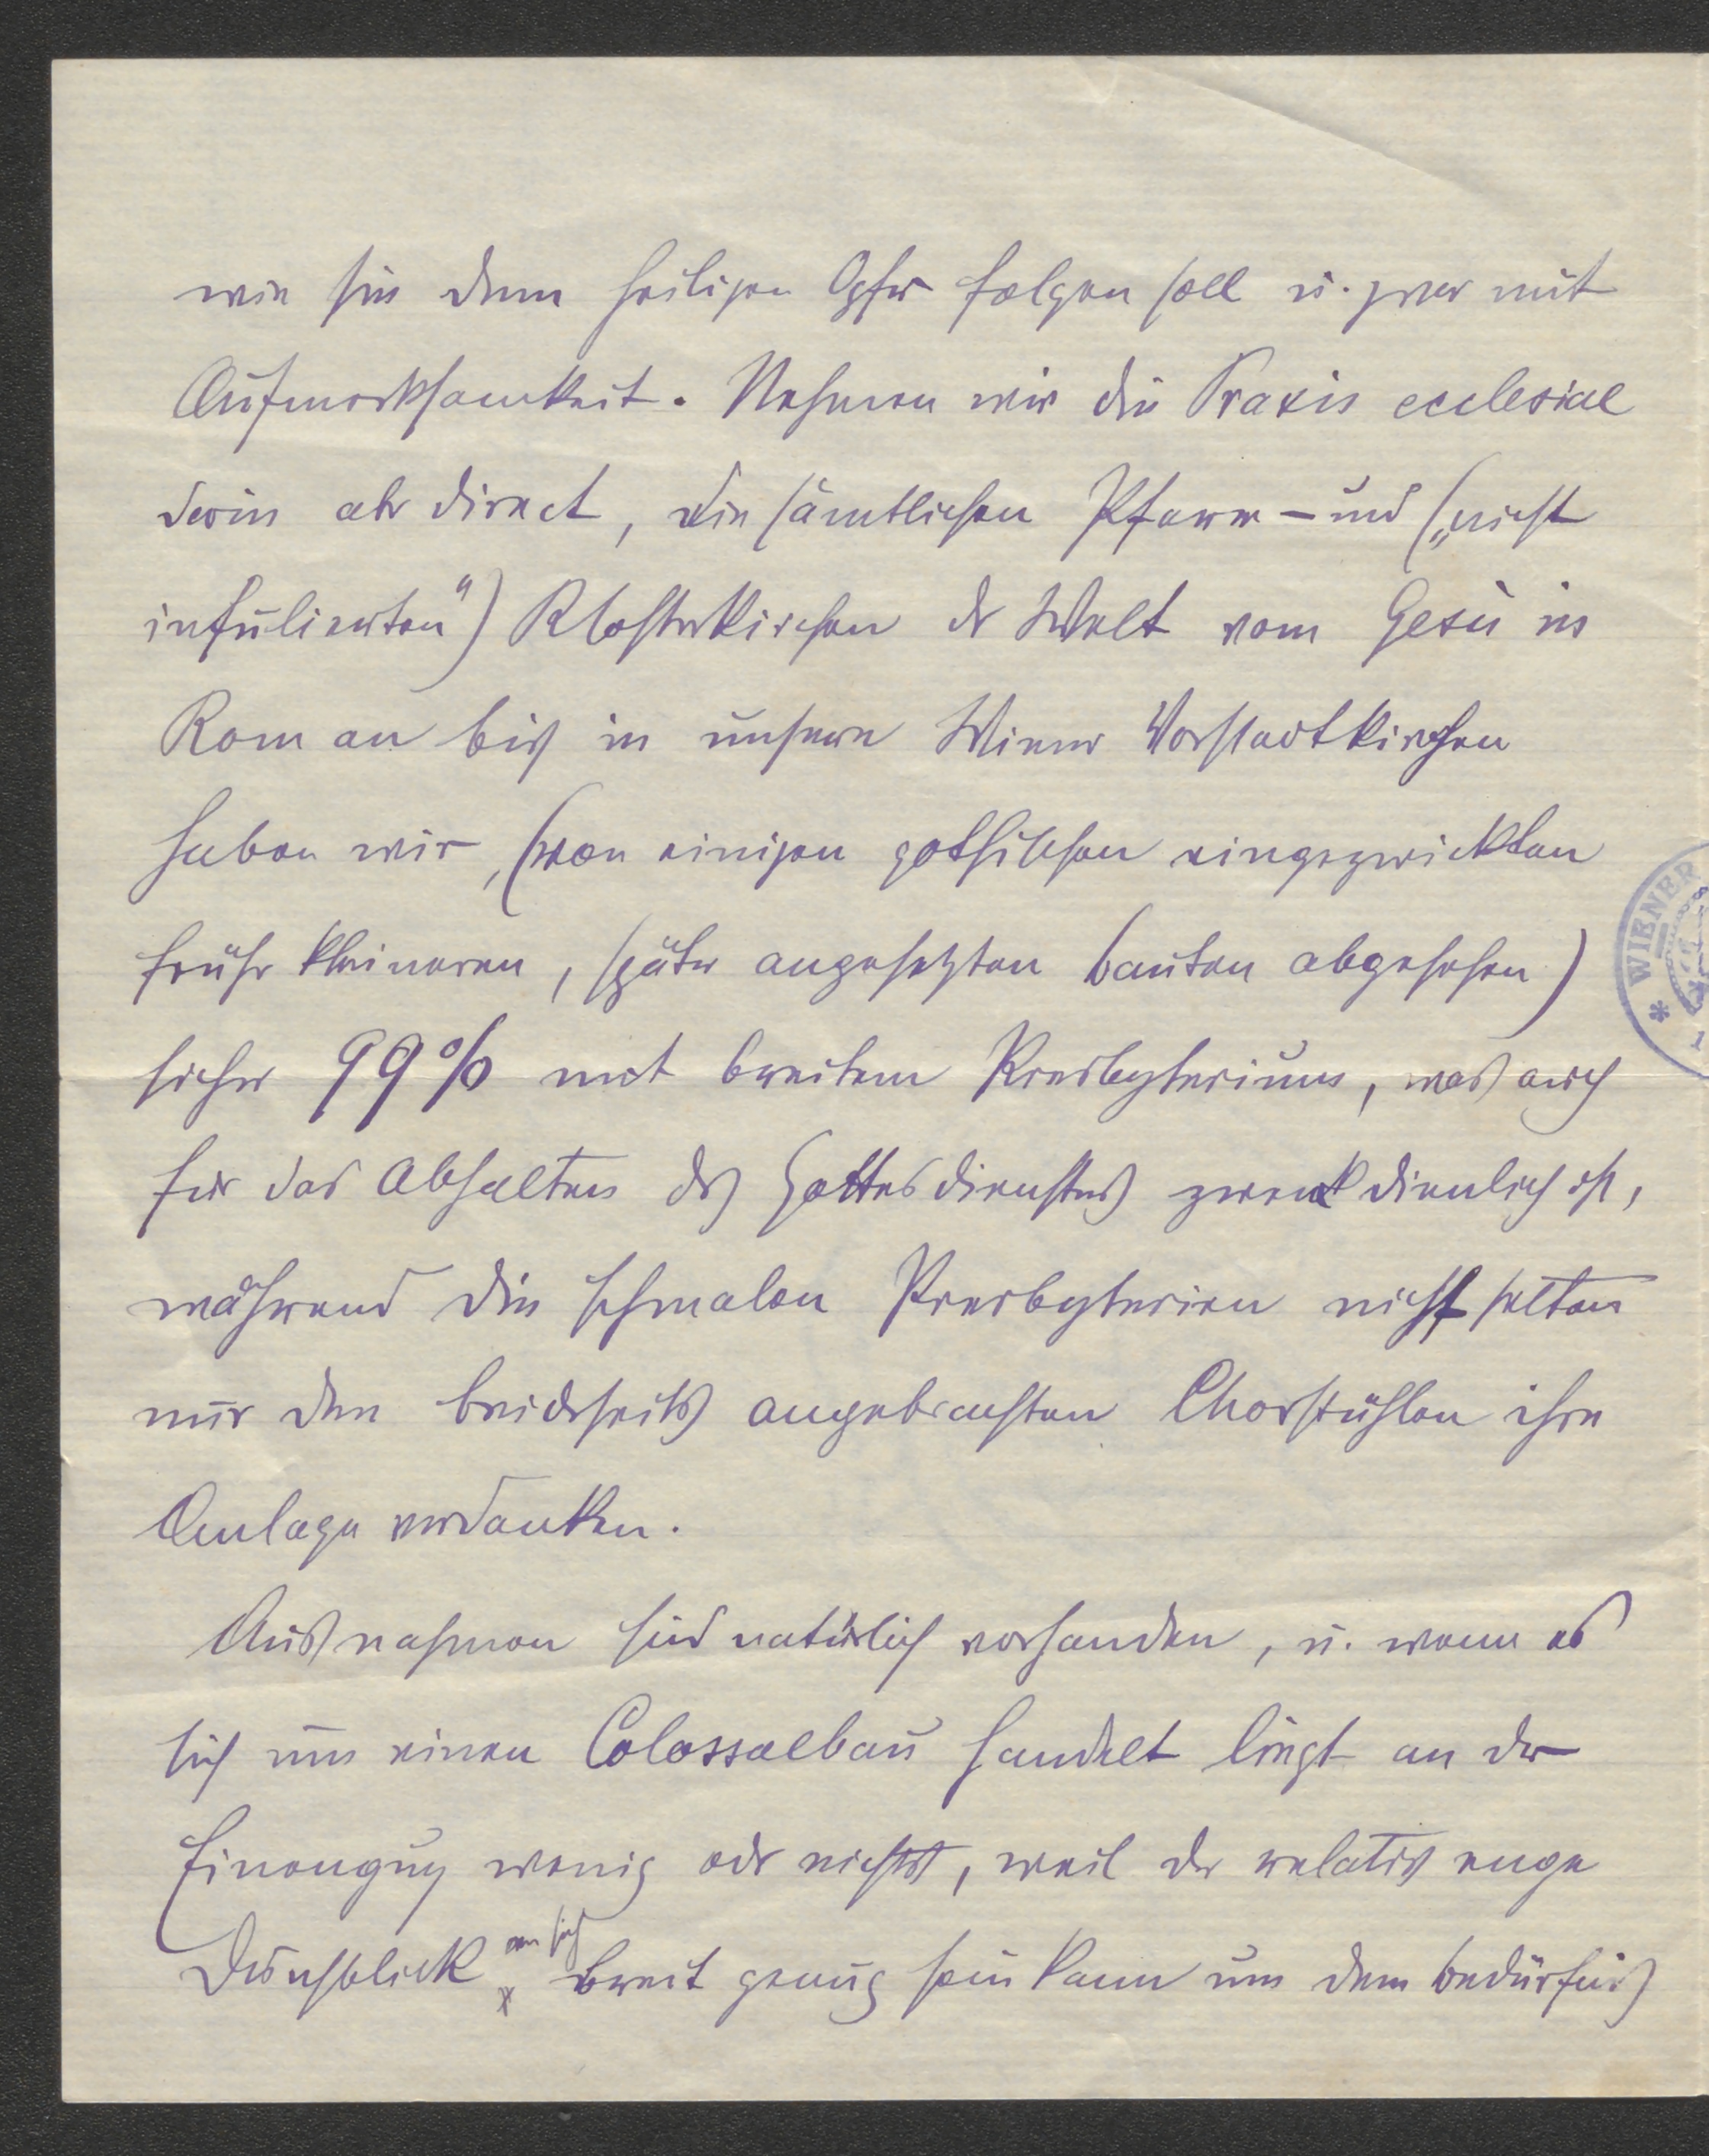 wie sie dem heiligen Opfer folgen soll u. zwar mit
Aufmerksamkeit. Nehmen wir die Praxis ecclesiae
direct, die sämtlichen Pfarr- und („nicht
infulierten") Klosterkirchen der Welt vom Gesù in
Rom an bis in unsere Wiener Vorstadtkirchen
haben wir, (von einigen gothischen eingezwickten
früher kleineren, später angesetzten bauten abgesehen)
sicher 99% mit breitem Presbyterium, was auch
für das Abhalten des Gottesdienstes zweckdienlich ist,
während die schmalen Presbyterien nicht selten
nur den beiderseits angebrachten Chorstühlen ihre
Anlage verdanken.
Ausnahmen sind natürlich vorhanden, u. wenn es
sich um einen Colossalbau handelt liegt an der
Einengung wenig oder nichts, weil der relativ enge
an sich
Durchblick x breit genug sein kann um dem bedürfnis
WIENER